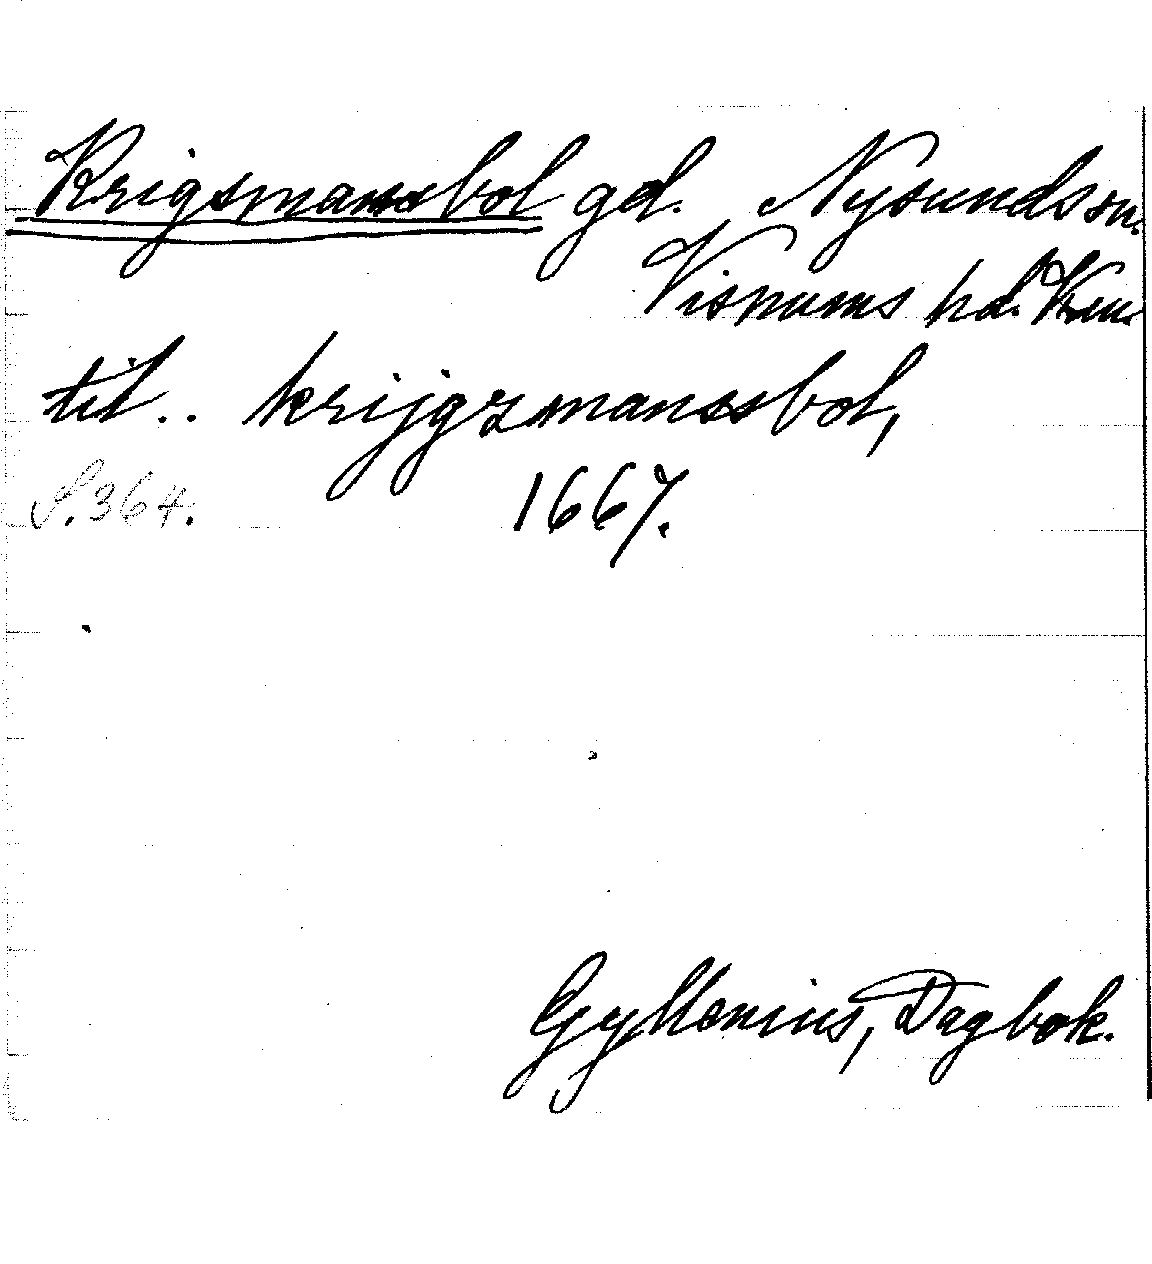 Krigsmansbol gd. Nysunds sn.
Visnums hd. Krm.
til.. krijgzmanssbol,
S. 364. 1667.
Gyllenius, Dagbok.